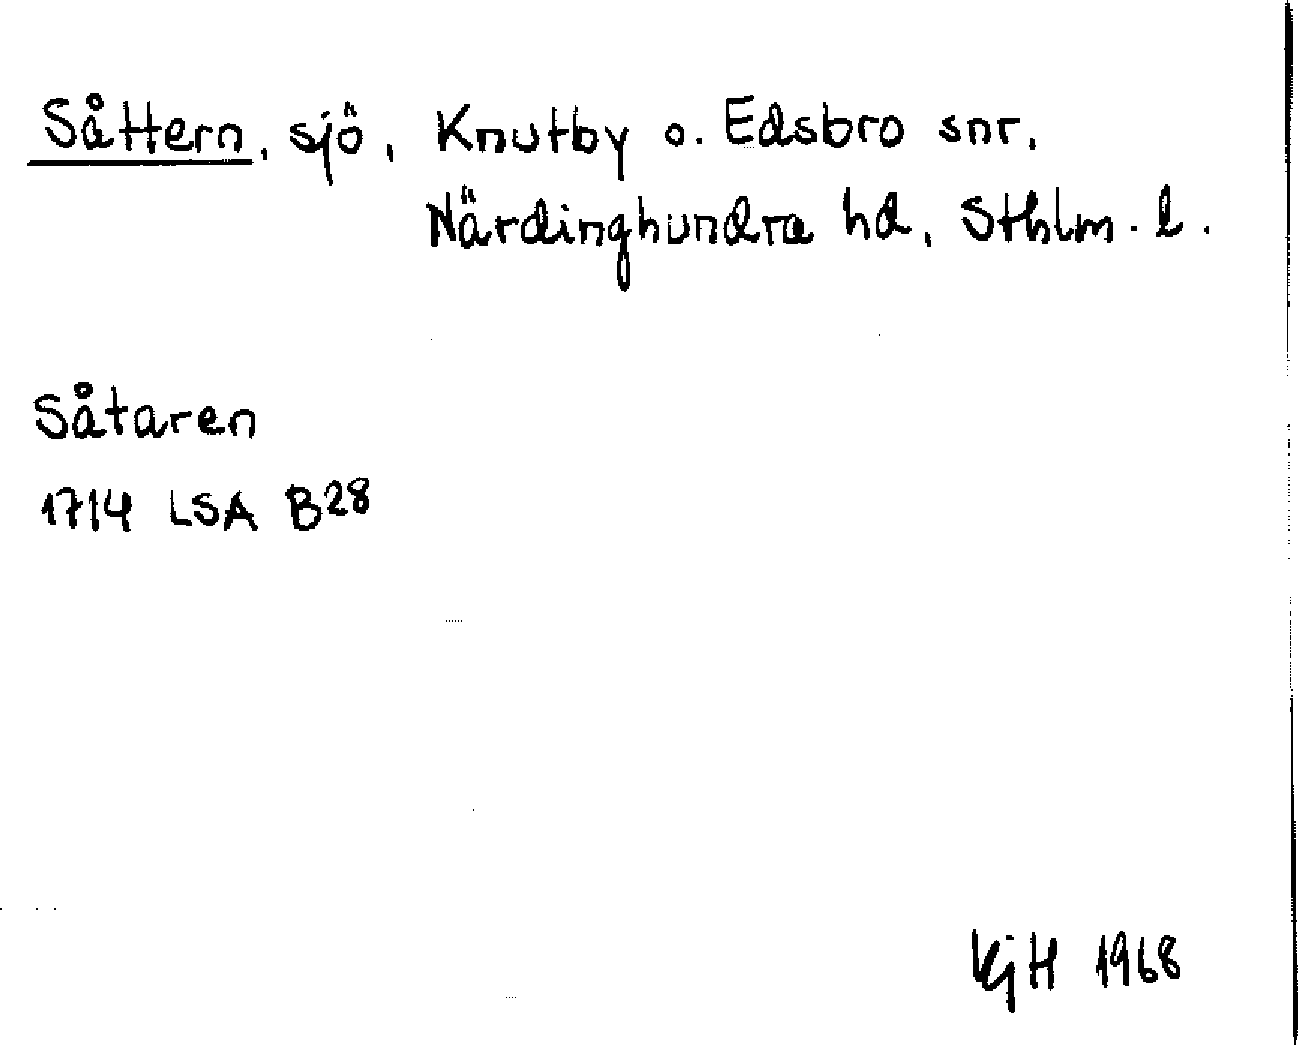 Såttern, sjö, Knutby o. Edsbro snr,
Närdinghundra hd, Sthlm. l.
Såtaren
1714 LSA B28
KjH 1968